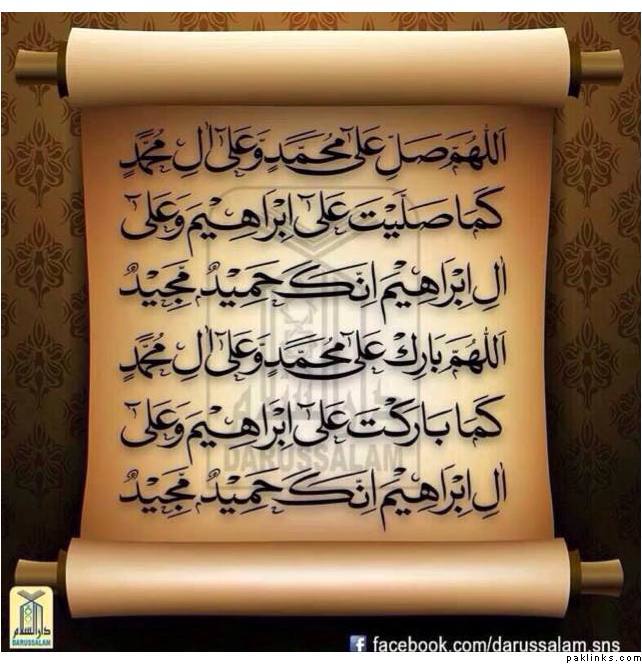 اَللّٰهُمَّ صَلِّ عَلٰى مُحَمَّدٍ وَّعَلٰى اٰلِ مُحَمَّدٍ
كَمَا صَلَّيْتَ عَلٰى اِبْرَاهِيْمَ وَعَلٰى
اٰلِ اِبْرَاهِيْمَ اِنَّكَ حَمِيْدٌ مَّجِيْدٌ
اَللّٰهُمَّ بَارِكْ عَلٰى مُحَمَّدٍ وَّعَلٰى اٰلِ مُحَمَّدٍ
كَمَا بَارَكْتَ عَلٰى اِبْرَاهِيْمَ وَعَلٰى
اٰلِ اِبْرَاهِيْمَ اِنَّكَ حَمِيْدٌ مَّجِيْدٌ
DARUSSALAM
دار السلام
DARUSSALAM
facebook.com/darussalam.sns
paklinks.com